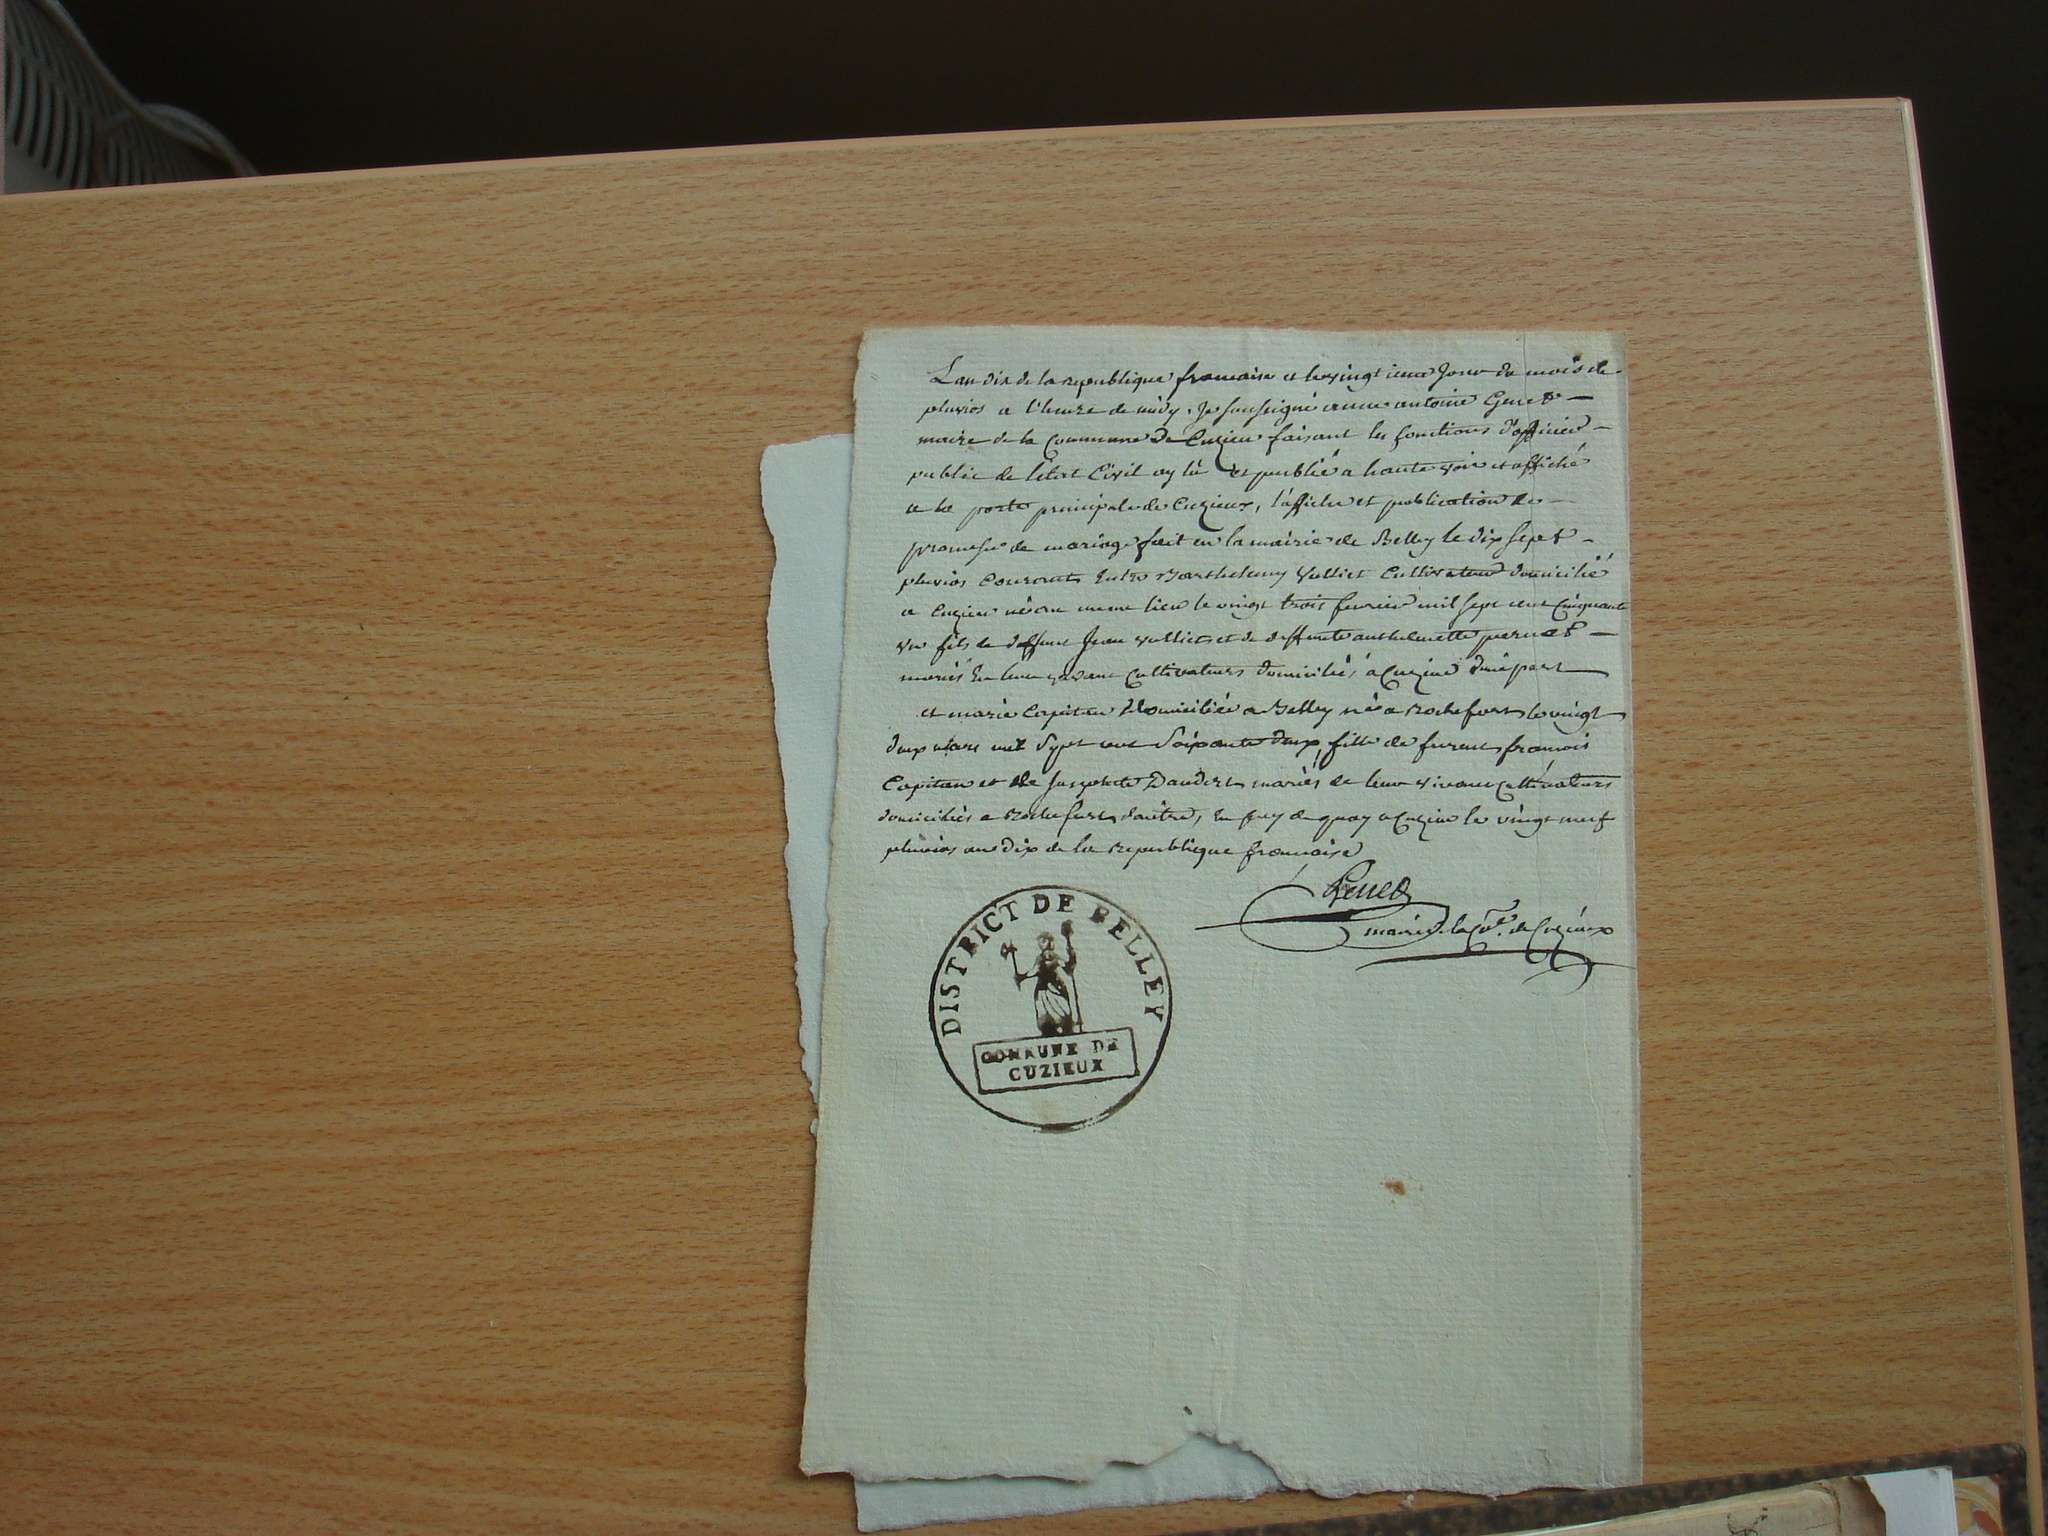 Lan dix de la republique francaise et le vingt jeme Jour du mois de
pluvios a l'heure de midy, Je soussigné antoine
maire de la Commune de Cuzieu faisant les fonctions d'officier
public de létat Civil ay lû et publié a haute voix et affiché
a la porte principale de Cuzieux, l'affiche et publication de
promesse de mariage fait en la mairie de Belley le dix sept
pluvios Courant Entre Barthelemy Vulliet Cultivateur domicilié
a Cuzieu né au meme lieu le vingt trois fevrier mil sept cent Cinquante
un fils de deffunt Jean vulliet et de deffunte anthelmette pernet
mariés En leur vivant Cultivateurs domiciliés a Cuzieu dune part
et marie Capitan domiciliée a Belley née a Rochefort le vingt
deux mars mil Sept cent Soixante deux fille de furent francois
Capitan et de Josephte mariés de leur vivant Cultivateurs
domiciliés a Rochefort dautre, En foy de quoy a Cuzieu le vingt neuf
pluvios an dix de la Republique francaise
maire de la Cne. de Cuzieux
DISTRICT DE BELLEY
COMMUNE DE
CUZIEUX